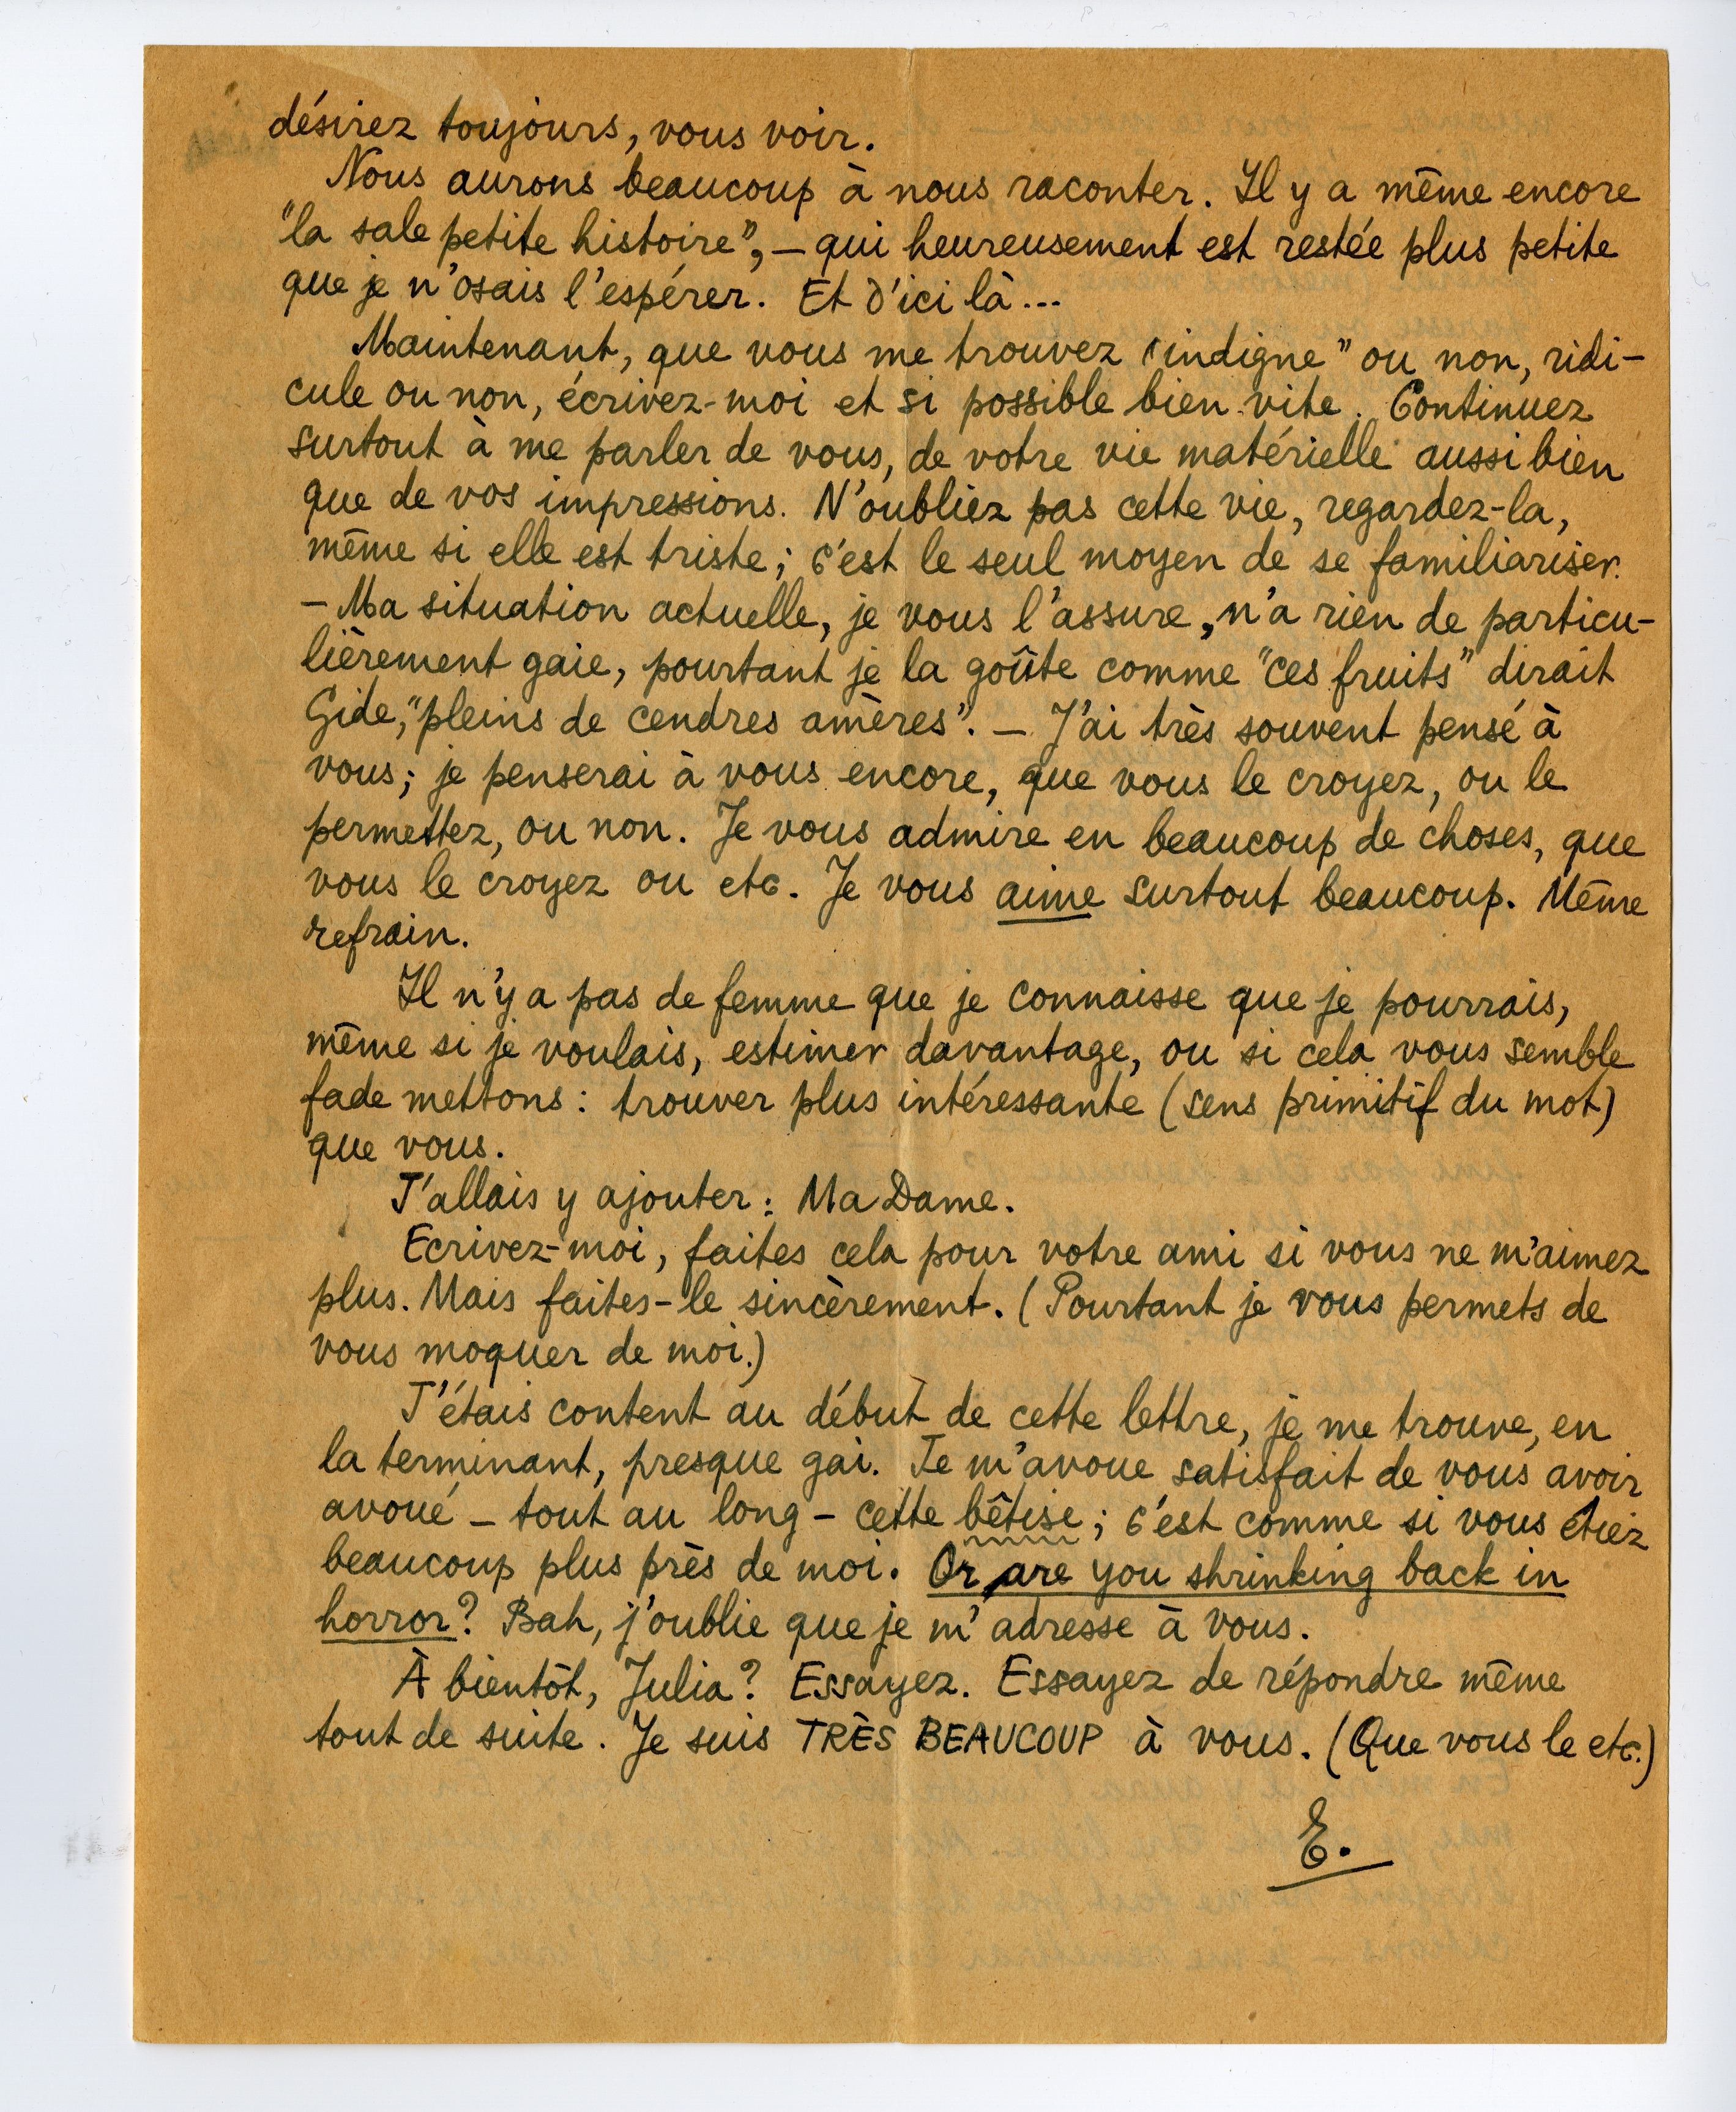 désirez toujours, vous voir.
Nous aurons beaucoup à nous raconter. Il y a même encore
"la sale petite histoire", – qui heureusement est restée plus petite
que je n'osais l'espérer. Et d'ici là...
Maintenant, que vous me trouvez "indigne" ou non, ridi-
cule ou non, écrivez-moi et si possible bien vite. Continuez
surtout à me parler de vous, de votre vie matérielle aussi bien
que de vos impressions. N'oubliez pas cette vie, regardez-la,
même si elle est triste; c'est le seul moyen de se familiariser.
– Ma situation actuelle, je vous l'assure, n'a rien de particu-
lièrement gaie, pourtant je la goûte comme "ces fruits" dirait
Gide, "pleins de cendres amères". – J'ai très souvent pensé à
vous; je penserai à vous encore, que vous le croyez, ou le
permettez, ou non. Je vous admire en beaucoup de choses, que
vous le croyez ou etc. Je vous aime surtout beaucoup. Même
refrain.
Il n'y a pas de femme que je connaisse que je pourrais,
même si je voulais, estimer davantage, ou si cela vous semble
fade mettons: trouver plus intéressante (sens primitif du mot)
que vous.
J'allais y ajouter: Ma Dame.
Ecrivez-moi, faites cela pour votre ami si vous ne m'aimez
plus. Mais faites-le sincèrement. (Pourtant je vous permets de
vous moquer de moi.)
J'étais content au début de cette lettre, je me trouve, en
la terminant, presque gai. Je m'avoue satisfait de vous avoir
avoué – tout au long – cette bêtise; c'est comme si vous étiez
beaucoup plus près de moi. Or are you shrinking back in
horror? Bah, j'oublie que je m'adresse à vous.
À bientôt, Julia? Essayez. Essayez de répondre même
tout de suite. Je suis TRÈS BEAUCOUP à vous. (Que vous le etc.)
E.